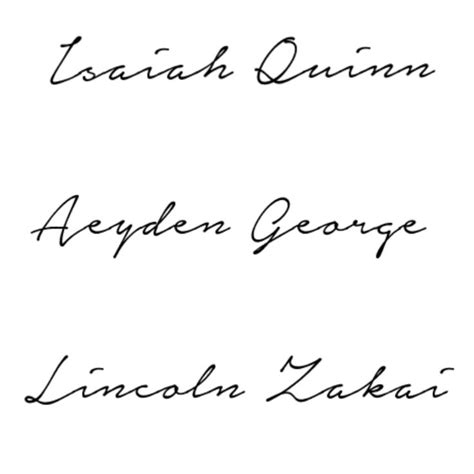 Isaiah Quinn
Aeyden George
Lincoln Zakai